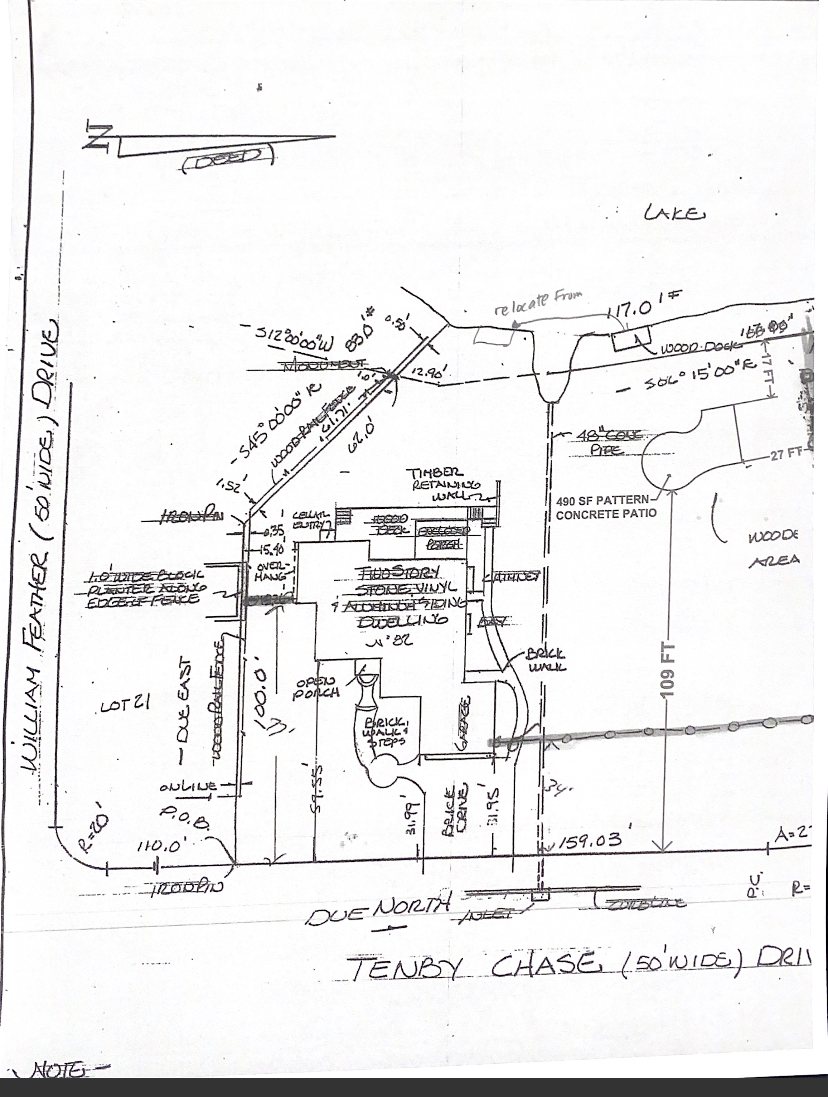 N
(DEED)
LAKE
relocate From
117.0'±
WOOD DOCK
S12°00'00"W
83.0'±
0.50'
MONUMENT
12.90'
S06°15'00"E
17 FT
S45°00'00"E
WOOD RAIL FENCE
61.71'
62.0'
48" CONC
PIPE
27 FT
1.52'
TIMBER
RETAINING
WALL
490 SF PATTERN
CONCRETE PATIO
IRON PIN
CELLAR
ENTRY
WOOD
DECK
ENCLOSED
PORCH
0.35
15.40'
OVER-
HANG
WOODE
AREA
1.0' WIDE BLOCK
PLANTER ALONG
EDGE OF FENCE
TWO STORY
STONE, VINYL
& ALUMINUM SIDING
DWELLING
Nº 82
CHIMNEY
BAY
BRICK
WALK
WILLIAM FEATHER (50' WIDE) DRIVE
LOT 21
DUE EAST
WOOD RAIL FENCE
100.0'
OPEN
PORCH
BRICK
WALK &
STEPS
GARAGE
109 FT
ONLINE
P.O.B.
59.55'
31.99'
BRICK
DRIVE
31.95'
34.
R=20'
110.0'
159.03'
A=2
IRON PIN
R=
DUE NORTH
INLET
CURBLINE
TENBY CHASE (50' WIDE) DRI
NOTE-